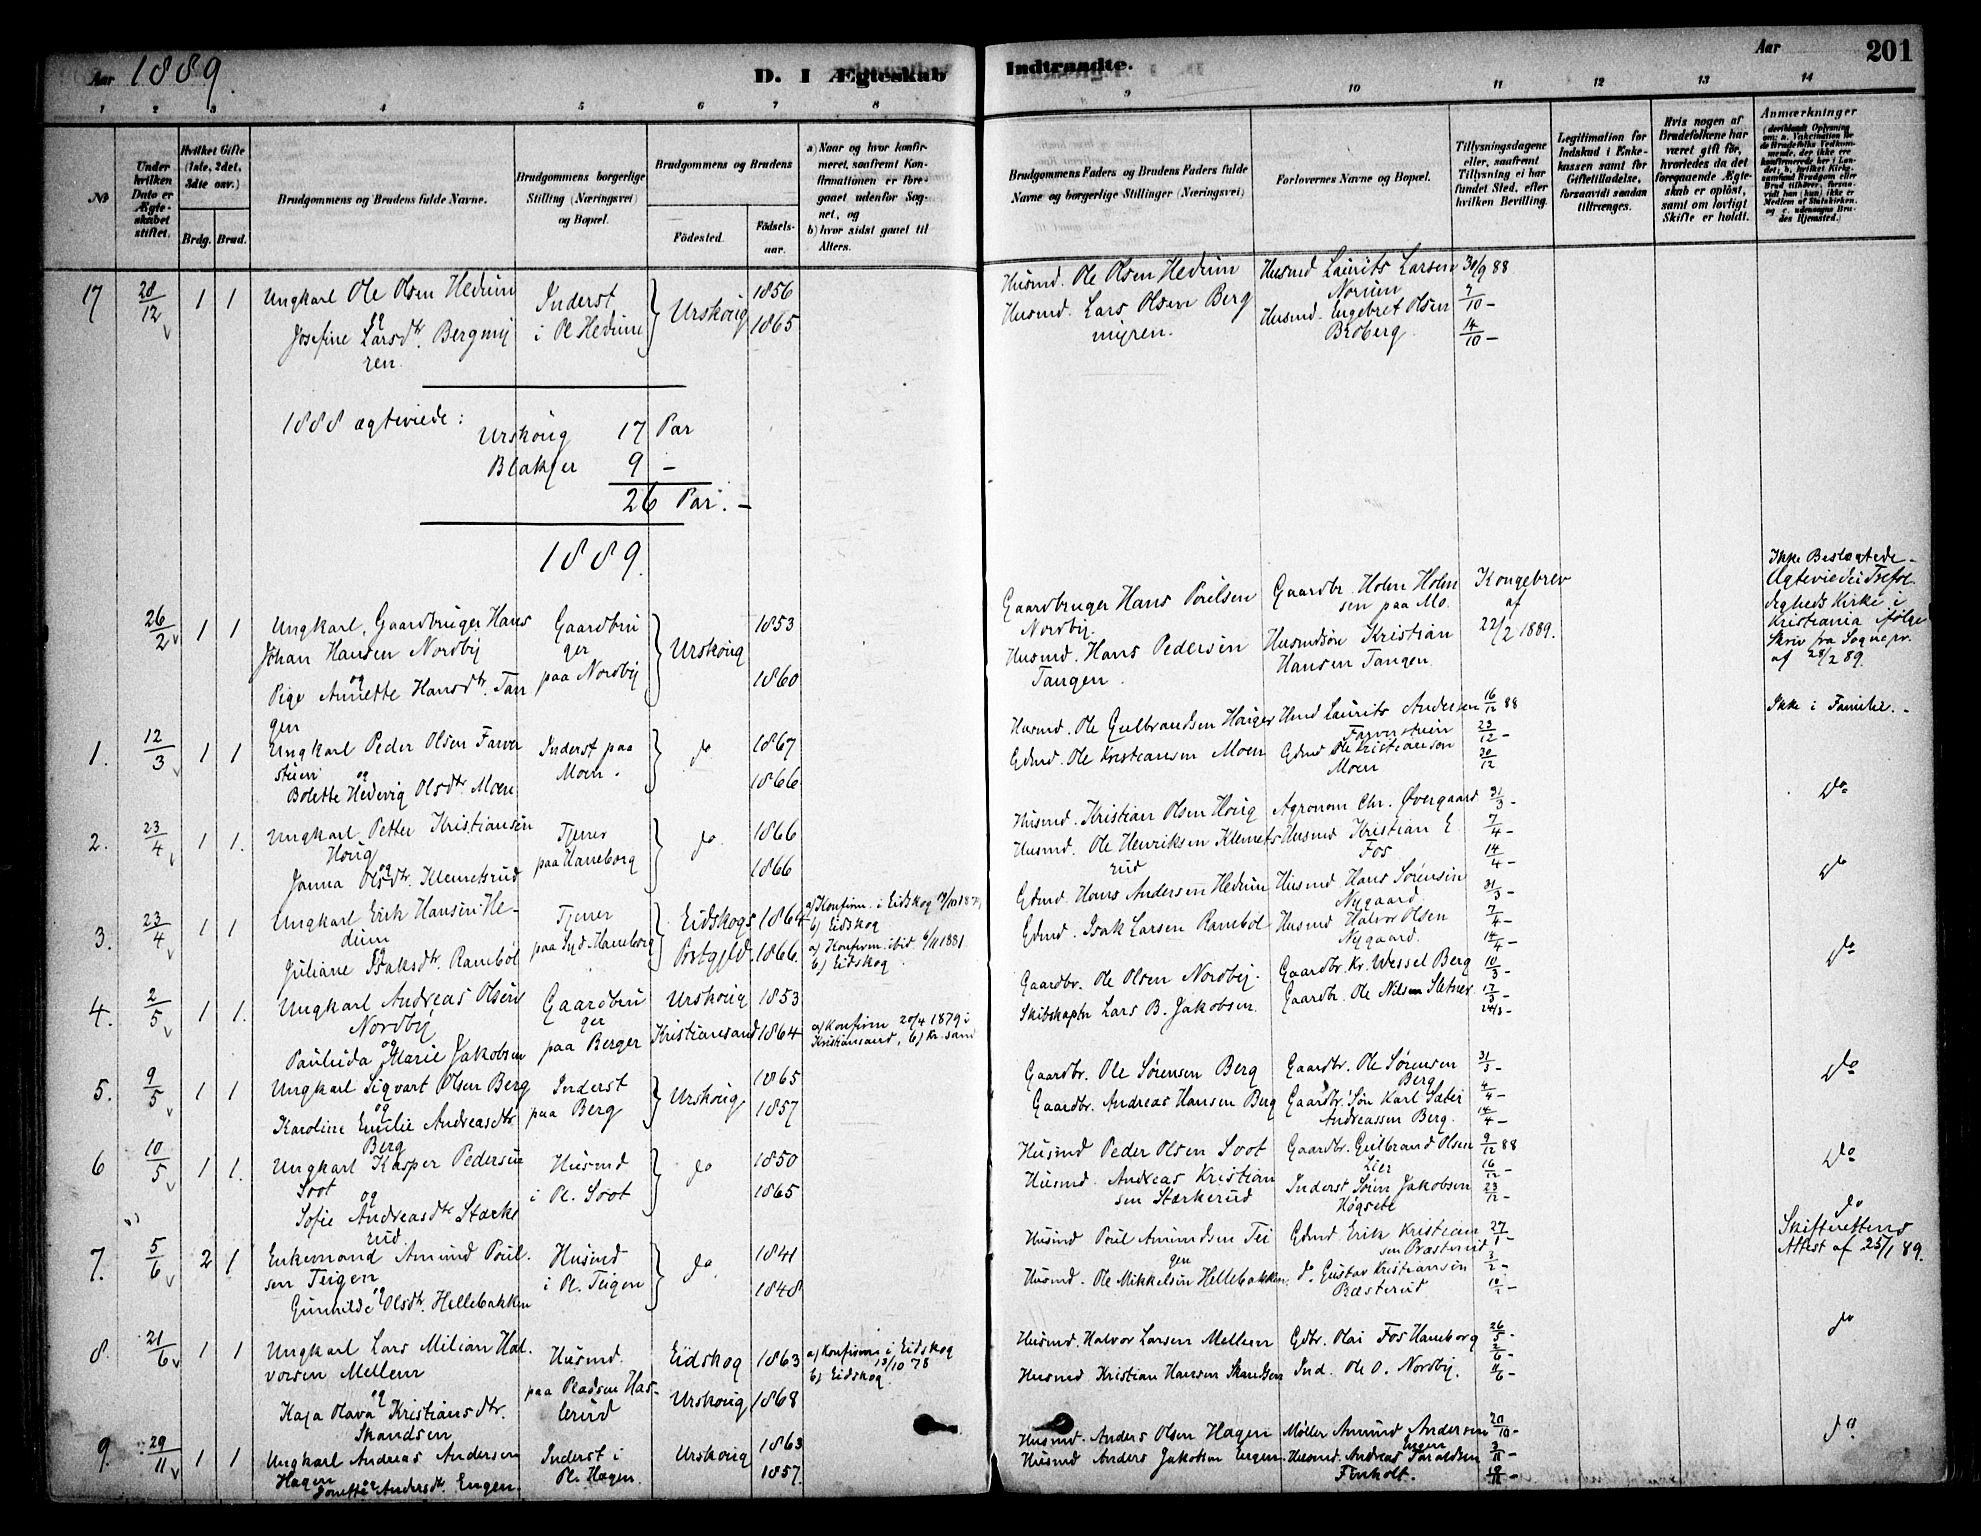 Aar 1889.
D. I Ægteskab
Indtraadte.
Aar
201
1 2 3 4 5 6 7 8
9 10 11 12 13 14
No
Under hvilken Dato er Ægteskabet stiftet.
Hvilket Gifte (1ste, 2det, 3die osv.)
Brdg. Brud.
Brudgommens og Brudens fulde Navne.
Brudgommens borgerlige Stilling (Næringsvei) og Bopæl.
Brudgommens og Brudens
Fødested.
Fødsels-aar.
a) Naar og hvor konfirmeret, saafremt Konfirmationen er foregaaet udenfor Sognet, og
b) hvor sidst gaaet til Alters.
Brudgommens Faders og Brudens Faders fulde Navne og borgerlige Stillinger (Næringsvei)
Forlovernes Navne og Bopæl.
Tillysningsdagene eller, saafremt Tillysning ei har fundet Sted, efter hvilken Bevilling.
Legitimation for Indskud i Enkekassen samt for Giftetilladelse, forsaavidt saadan tiltrænges.
Hvis nogen af Brudefolkene har været gift før, hvorledes da det foregaaende Ægteskab er opløst, samt om lovligt Skifte er holdt.
Anmærkninger
17 28/12 1 1 Ungkarl Ole Olsen Hedum
og
Josefine Larsdtr. Bergmy
ren.
Inderst
i Pl Hedum
Urskoug
1856
1865
Husmd. Ole Olsen Hedum
Husmd. Lars Olsen Berg
myren.
Husmd Laurits Larsen
Norum
Husmd. Engebret Olsen
Broberg.
30/9 88
7/10 -
14/10 -
1888 ægteviede:
Urskoug 17 Par
Blakjer 9 -
26 Par. -
1889.
26/2 1 1 Ungkarl, Gaardbruger Hans
Johan Hansen Nordby
og
Pige Annette Hansdtr. Tan
gen
Gaardbru
ger
paa Nordby
Urskoug
1853
1860
Gaardbruger Hans Poulsen
Nordby.
Husmd. Hans Pedersen
Tangen.
Gaardbr. Holm Holm
sen paa Mo.
Husmdsøn Kristian
Hansen Tangen
Kongebrev
af
22/2 1889.
Ikke Beslægtede -
Ægteviede i Trefol
digheds Kirke i
Kristiania ifølge
Skriv fra Sognepr.
af 28/2 89.
1. 12/3 1 1 Ungkarl Peder Olsen Farver
stuen
og
Bolette Hedevig Olsdtr. Moen
Inderst paa
Moen.
do
1867
1866
Husmd. Ole Gulbrandsen Houger
Gdmd. Ole Kristiansen Moen
Hmd Laurits Andersen
Farverstuen
Gdmd Ole Kristiansen
Moen
16/12 88
23/12 -
30/12
Ikke i Familie. -
2. 23/4 1 1. Ungkarl Petter Kristiansen
Houg
og
Janna Olsdtr. Klemetsrud
Tjener
paa Haneborg
do
1866
1866
Husmd. Kristian Olsen Houg
Husmd. Ole Henriksen Klemets
rud
Agronom Chr. Øvergaard
Husmd Kristian E
Fos
31/3 -
7/4 -
14/4 -
do
3. 23/4 1 1 Ungkarl Erik Hansen He-
dum
og
Juliane Isaksdtr. Rambøl
Tjener
paa Syd-Haneborg
Eidskogs
Prstgjld.
1864
1866.
b) Eidskog
a) Konfirm. ibid 6/11 1881.
b) Eidskog
Gdmd. Hans Andersen Hedum
Gdmd. Isak Larsen Rambøl
Husmd Hans Sørensen
Nygaard
Husmd Halvor Olsen
Nygaard.
31/3 -
7/4 -
14/4 -
do
4. 2/5 1 1. Ungkarl Andreas Olsen
Nordby
og
Paulida Marie Jakobsen
Gaardbru
ger
paa Berger
Urskoug
Kristiansand
1853
1864
a) Konfirm 20/4 1879 i
Kristiansand, b) Kr.sand
Gaardbr. Ole Olsen Nordby.
Skibskaptn Lars B. Jakobsen.
Gaardbr. Kr. Wessel Berg
Gaardbr. Ole Nilsen Sletner
10/3 -
17/3 -
24/3 -
do
5. 9/5 1 1 Ungkarl Sigvart Olsen Berg
og
Karoline Emilie Andreasdtr.
Berg
Inderst
paa Berg
Urskoug
1865
1857
Gaardbr. Ole Sørensen Berg
Gaardbr. Andreas Hansen Berg
Gaardbr. Ole Sørensen
Berg
Gaardbr. Søn Karl
Andreassen Berg.
31/3 -
4/4 -
14/4 -
do
6 10/5 1 1. Ungkarl Kasper Pedersen
Soot
og
Sofie Andreasdtr Stærke
rud
Husmd
i Pl. Soot
do
1850
1865
Husmd Peder Olsen Soot
Husmd. Andreas Kristian
sen Stærkerud
Gaardbr. Gulbrand Olsen
Lier
Inderst Søren Jakobsen
Høgsete
9/12 88
16/12 -
23/12 -
do
7. 5/6 2 1 Enkemand Amund Poul
sen Teigen
og
Gunnilde Olsdtr. Hellebakken
Husmd
i Pl. Teigen
do.
1841
1848
Husmd Poul Amundsen Tei
gen
Husmd. Ole Mikkelsen Hellebakken
Gdmd Erik Kristian
sen Præsterud
do. Gustav Kristiansen
Præsterud
27/1 -
3/2 -
10/2 -
do
Skifterettens
Attest af 25/1 89.
8. 21/6 1 1 Ungkarl Lars Milian Hal
vorsen Mellem
og
Kaja Olava Kristiansdtr.
Skandsen
Husmd.
paa Pladsen Has-
lerud
Eidskog
Urskoug
1863
1868
a) Konfirm i Eidskog
13/10 78
b) Eidskog
Husmd. Halvor Larsen Mellem
Husmd Kristian Hansen Skandsen
Gdbr. Olai Fos Haneborg
Ind. Ole O. Nordby.
26/5 -
2/6 -
11/6 -
do
9. 29/11 1 1 Ungkarl Andreas Andersen
Hagen
og
Andersdtr. Engen.
Inderst i
Pl. Hagen.
Urskoug
1863
1857.
Husmd. Anders Olsen Hagen
Husmd Anders Jakobsen Engen.
Møller Amund Andersen
Engen
Husmd. Andreas Taraldsen
Finholt.
20/10 -
3/11 -
10/11 -
do